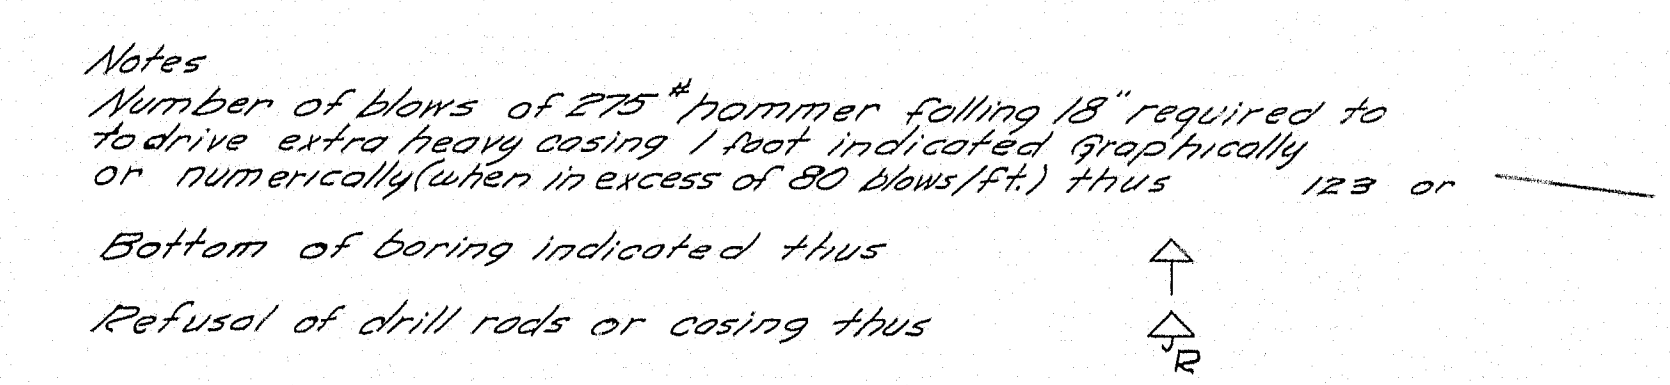 Notes
Number of blows of 275# hammer falling 18" required to
to drive extra heavy casing 1 foot indicated Graphically
or numerically (when in excess of 80 blows/ft.) thus 123 or
Bottom of boring indicated thus
Refusal of drill rods or casing thus
R